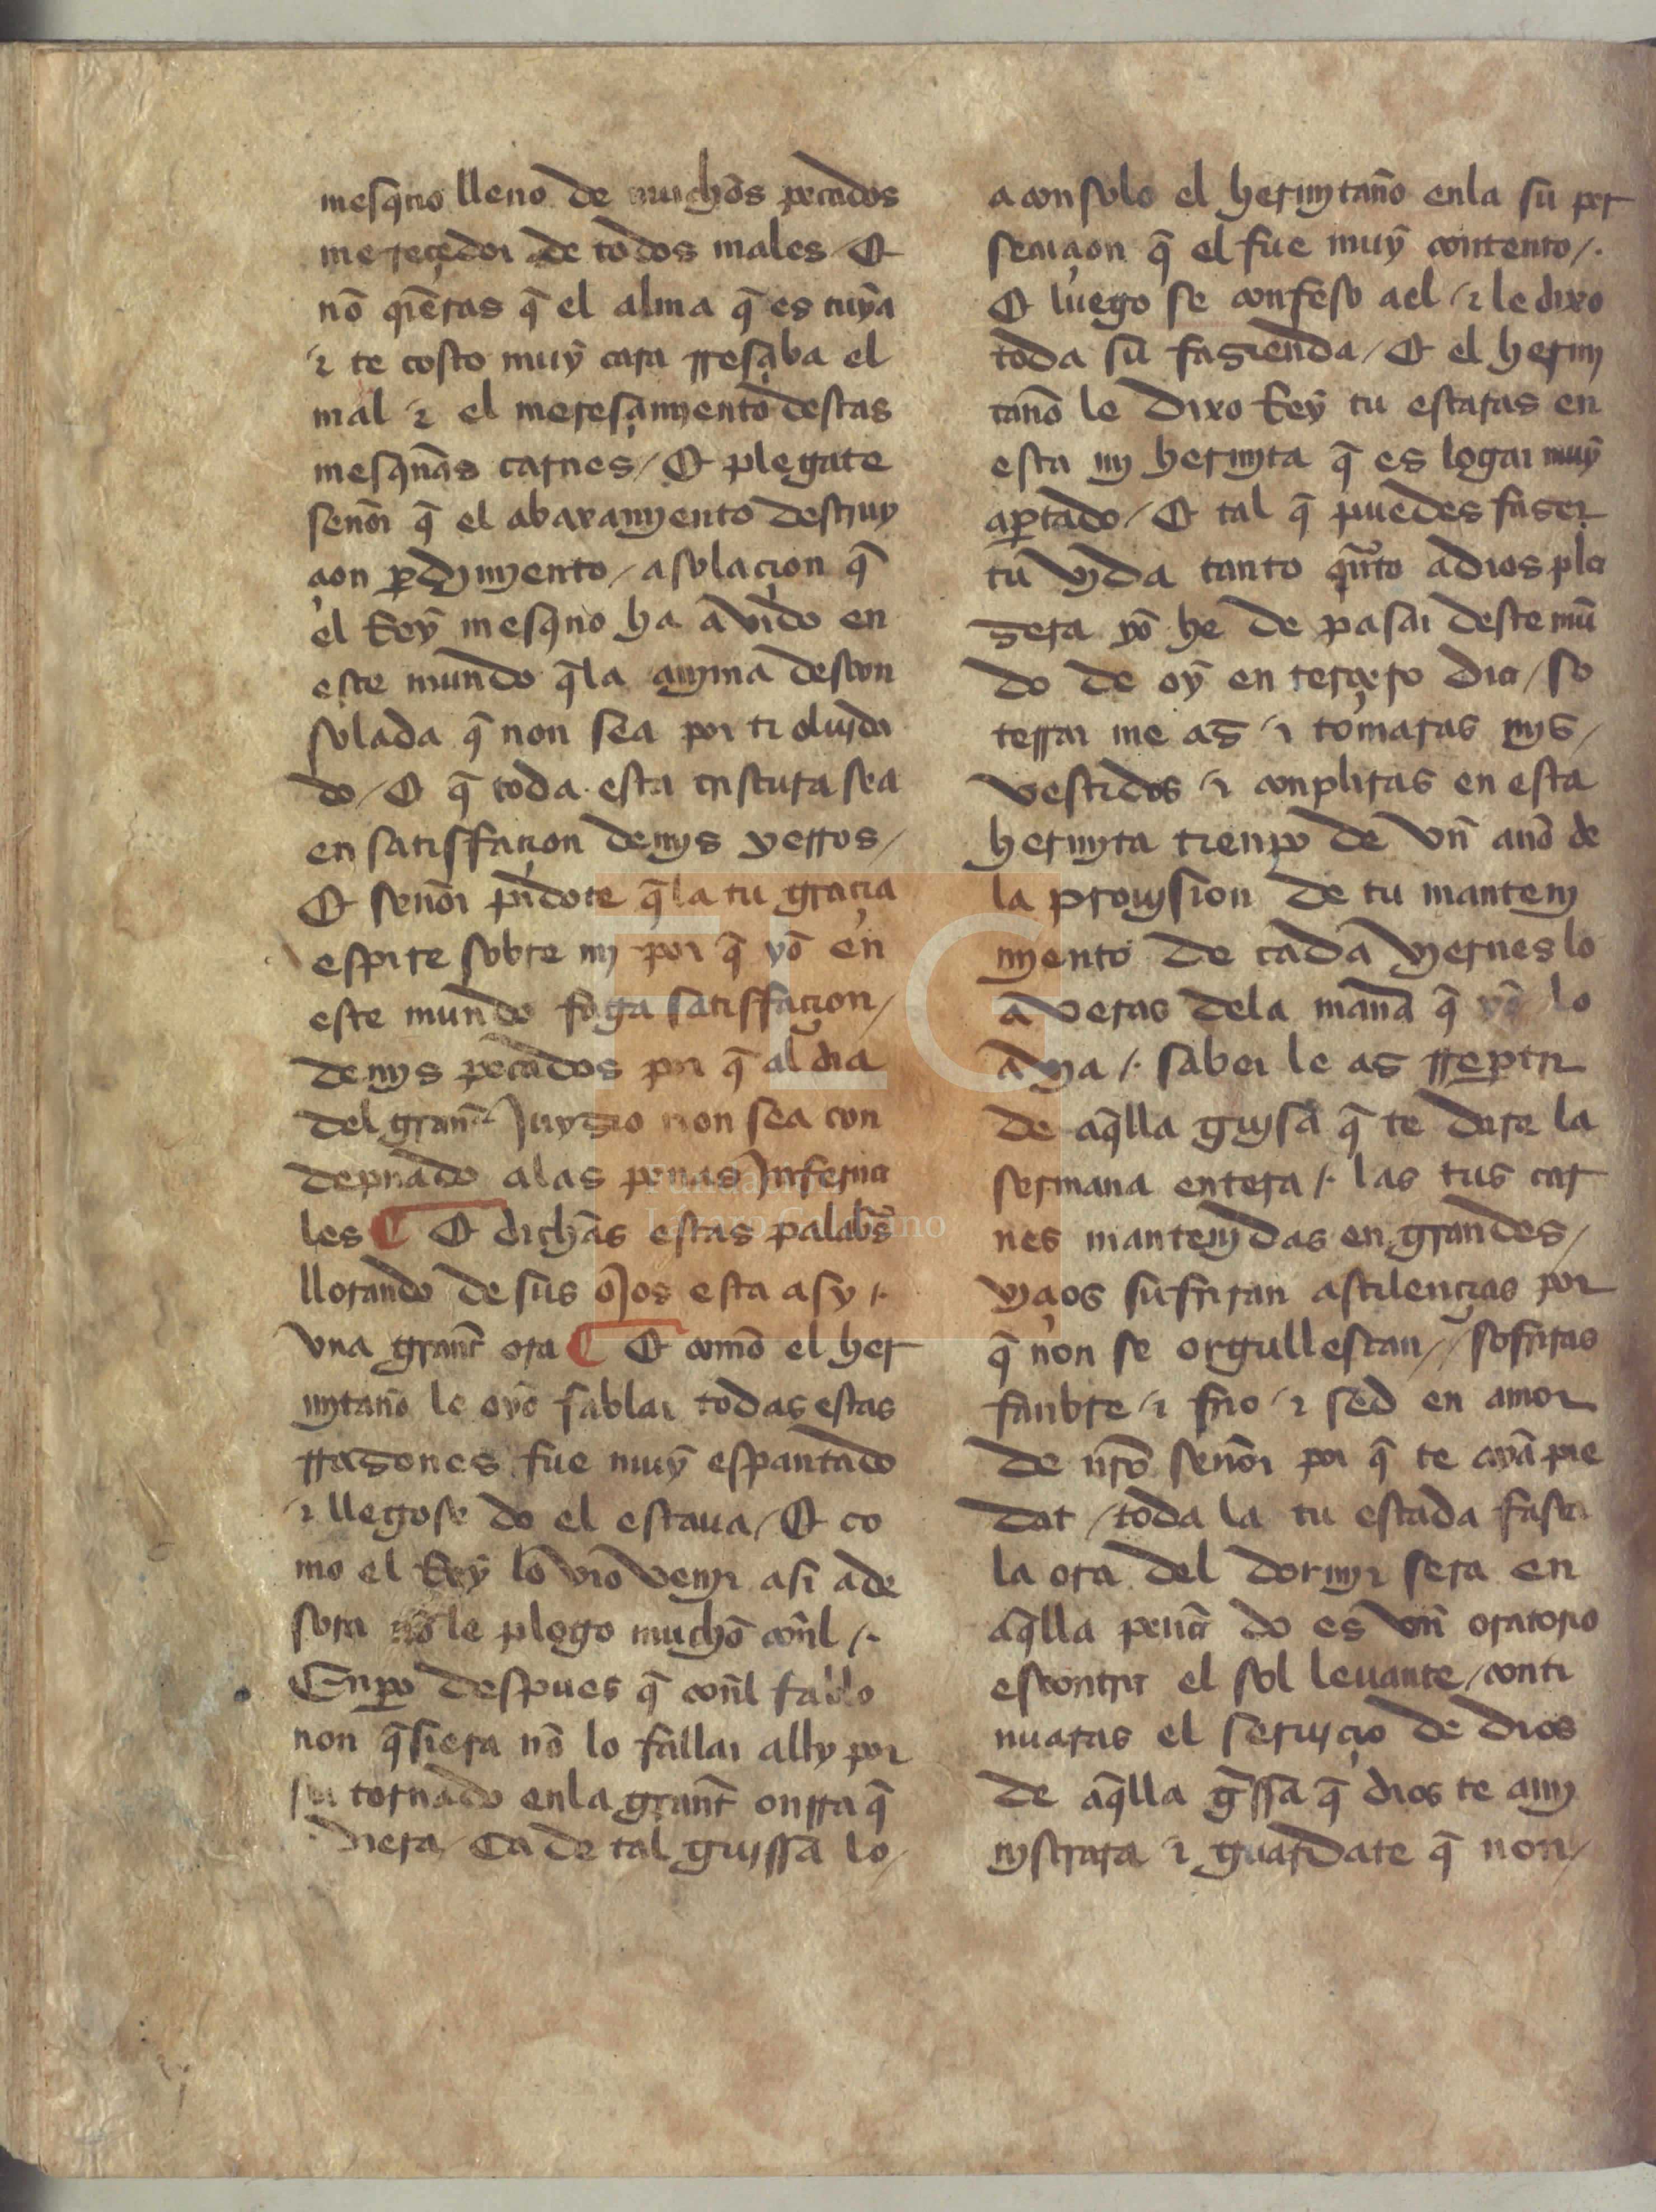 mesq̃no lleno de muchos pecados
mereçedor de todos males / Et
nõ q̃eras q̃ el alma q̃ es tuya
⁊ te costo muy cara rresçiba el
mal ⁊ el meresçimiento destas
mesq̃nas carnes / Et plegate
señor q̃ el abaxamiento destruy
çion perdimiento / asolaçion q̃
el Rey mesq̃no ha avido en
este mundo q̃ la anima descon
solada q̃ non sea por ti oluida
do / O q̃ toda esta tristura sea
en satisffaçion de mis yerros /
Et señor pidote q̃ la tu graçia
espire sobre mi por q̃ yo en
este mundo faga satisffaçion /
de mis pecados por q̃ al dia
del grant Juyzio non sea con
depnado a las penas Inferna
les ¶ Et dichas estas palabrs
llorando de sus ojos esta asy /.
vna grant ora ¶ Et como el her
mitaño le oyo fablar todas estas
rrazones fue muy espantado
⁊ llegose do el estaua / Et co
mo el Rey lo vio venir asi a de
sora nõ le plogo mucho conl /.
Enpo despues q̃ conl fablo
non q̃siera nõ lo fallar ally por
ser tornado en la grant onrra q̃
diera / Ca de tal guissa lo /
aconsolo el hermitaño en la su per
seuiçion q̃ el fue muy contento /.
Et luego se confeso a el / ⁊ le dixo
toda su fazienda / Et el hermi
taño le dixo Rey tu estaras en
esta mi hermita q̃ es logar muy
apartado / Et tal q̃ puedes fazer
tu vida tanto quãto a dios ple
zera yo he de pasar deste mũ
do de oy en terçero dia / so
terrar me as / ⁊ tomaras mis /
vestidos / ⁊ conpliras en esta
hermita tienpo de vn año de
la prouision de tu manteni
miento de cada viernes lo
averas de la mana q̃ yo lo
avia /. saber le as rrepartir
de aq̃lla guisa q̃ te dure la
sermana entera /. las tus car
nes mantenidas en grandes /
viçios sufriran astilençias por
q̃ non se orgullescan // sofriras
fanbre / ⁊ frio / ⁊ sed en amor
de nr̃o señor por q̃ te aya pie
dat / toda la tu estada fasta
la ora del dormir sera en
aq̃lla peña do es vn oratorio
escontra el sol leuante / conti
nuaras el seruiçio de dios
de aq̃lla g̃ssa q̃ dios te ami
nistrara ⁊ guardate q̃ non /
FLG
Fundación
Lázaro Galdiano